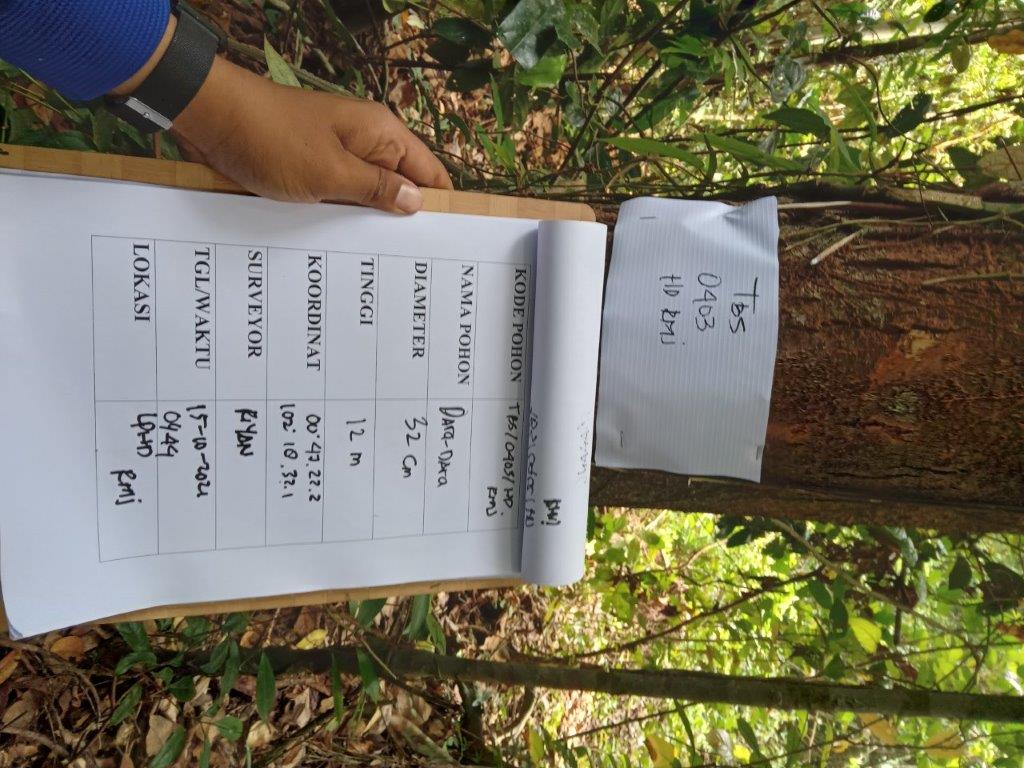 TBS
0403
HD RMJ
KODE POHON TBS/0403/HD
RMJ
NAMA POHON DARA-DARA
DIAMETER 32 Cm
TINGGI 12 m
KOORDINAT 00°47.22.2
102°10.32.1
SURVEYOR RIYAN
TGL/WAKTU 15-10-2021
09.44
LOKASI LPHD RMJ